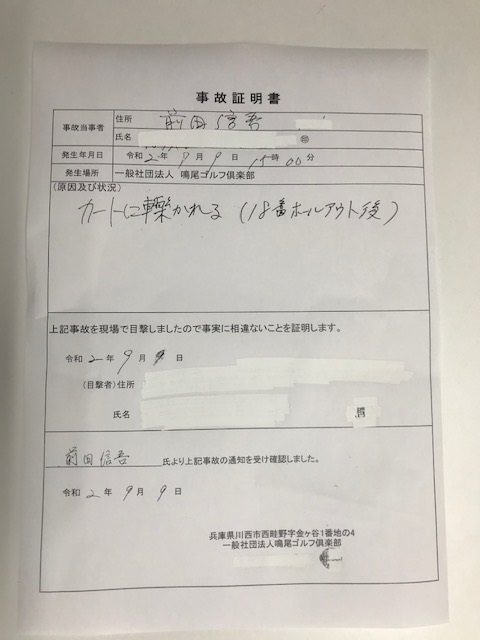 事故証明書
事故当事者
住所 前田信吾
氏名 ㊞
発生年月日 令和 2 年 9 月 9 日 時 00 分
発生場所 一般社団法人 鳴尾ゴルフ倶楽部
(原因及び状況)
カートに轢かれる (18番ホールアウト後)
上記事故を現場で目撃しましたので事実に相違ないことを証明します。
令和 2 年 9 月 9 日
(目撃者) 住所
氏名
前田信吾 氏より上記事故の通知を受け確認しました。
令和 2 年 9 月 9 日
兵庫県川西市西畦野字金ヶ谷1番地の4
一般社団法人鳴尾ゴルフ倶楽部